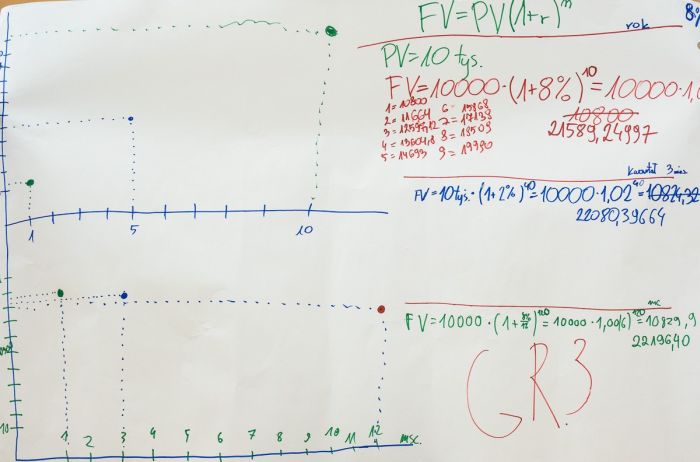 FV=PV(1+r)^n
rok
8%
PV=10 tys.
FV=10000·(1+8%)^10=10000·1,0
1=10800
2=11664
4=13604,8
5=14693
6=15868
7=17138
8=18509
9=19990
10800
21589,24997
1 5 10
kwartał 3 msc
FV=10 tys.·(1+2%)^40=10000·1,02^40=10824,32
22080,39664
msc
FV=10000·(1+8%/12)^120=10000·1,006)^120=10829,9
22196,40
GR.3
1 2 3 4 5 6 7 8 9 10 11 12 msc.
10